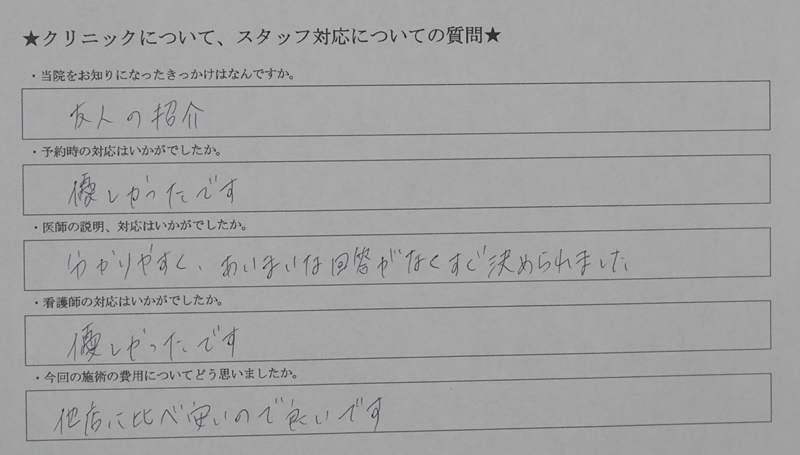 ★クリニックについて、スタッフ対応についての質問★
・当院をお知りになったきっかけはなんですか。
友人の紹介
・予約時の対応はいかがでしたか。
優しかったです
・医師の説明、対応はいかがでしたか。
分かりやすく、あいまいな回答がなくすぐ決められました
・看護師の対応はいかがでしたか。
優しかったです
・今回の施術の費用についてどう思いましたか。
他店に比べ安いので良いです